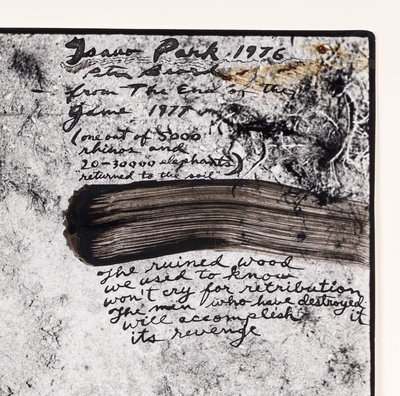 Tsavo Park 1976
Peter Beard
from The End of the
Game 1977
(one out of 5000
rhinos and
20-30000 elephants
returned to the soil
The ruined wood
we used to know
won't cry for retribution
The men who have destroyed it
will accomplish
its revenge